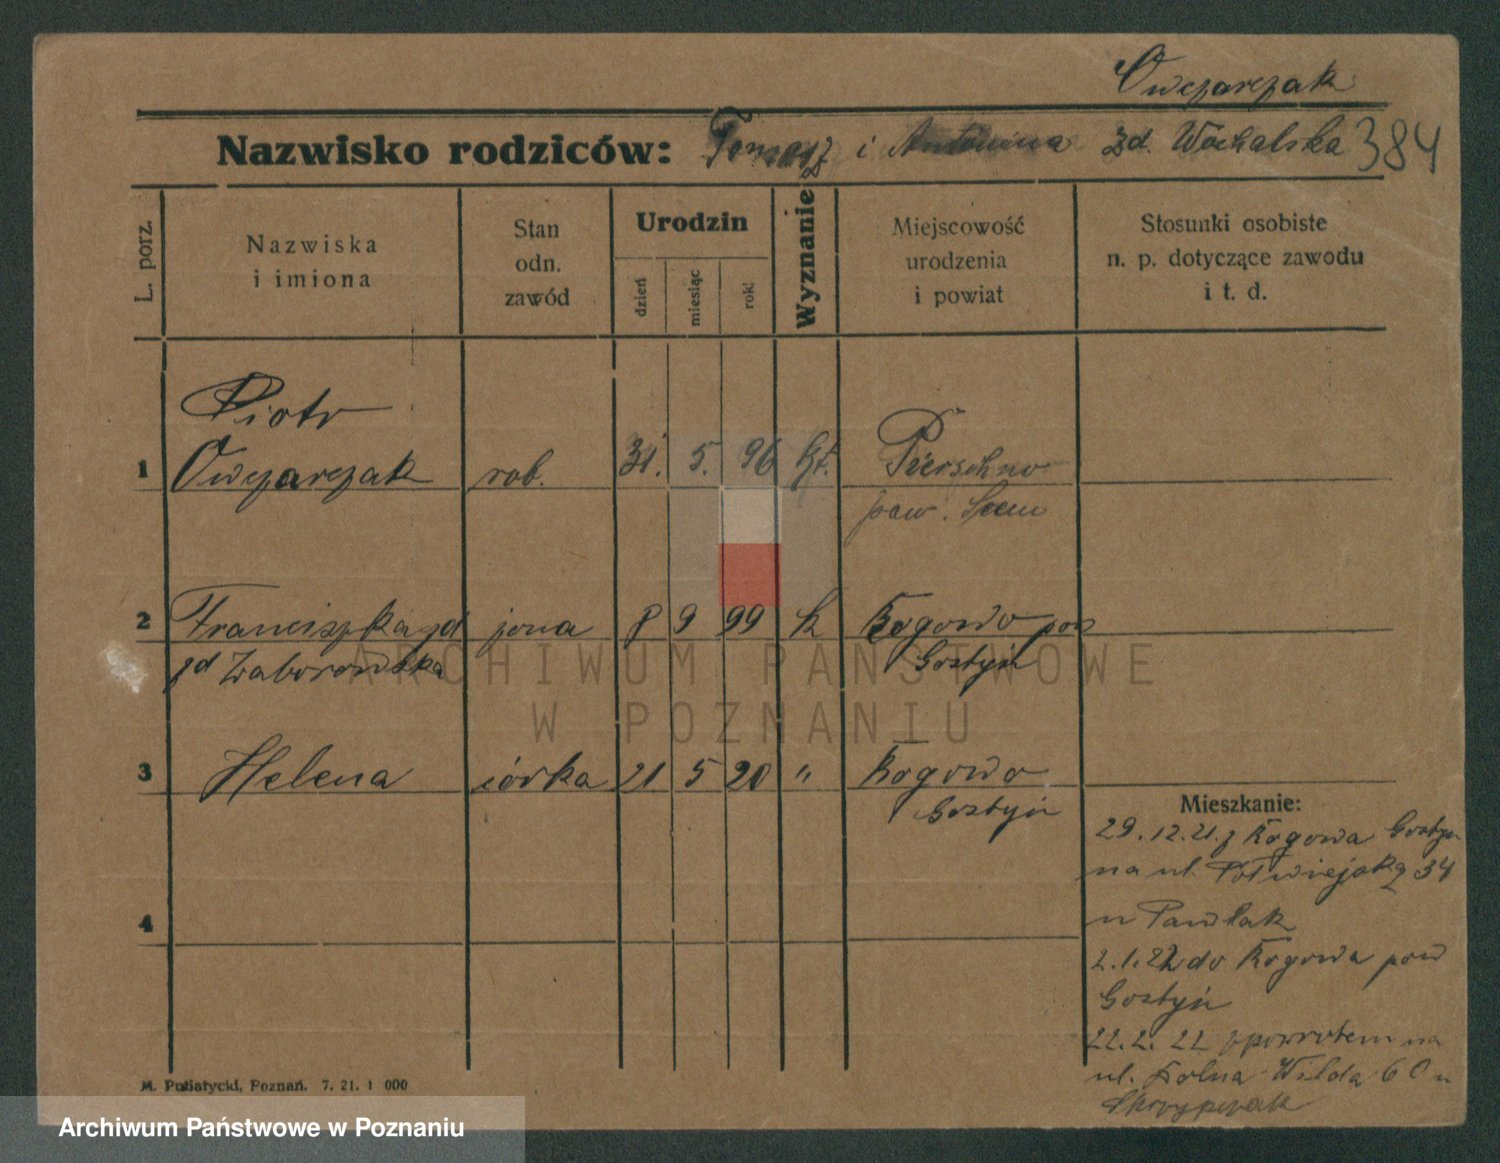 Owczarczak
Nazwisko rodziców: Tomasz i Antonina zd. Wochalska 384
L. porz.
Nazwiska
i imiona
Stan
odn.
zawód
Urodzin
dzień
miesiąc
rok
Wyznanie
Miejscowość
urodzenia
i powiat
Stosunki osobiste
n. p. dotyczące zawodu
i t. d.
Piotr
1 Owczarczak rob. 31. 5. 96 kt.
pow. Śrem
2 Franciszka zd żona 8 9 99 k Rogowo pow
zd Zaborowska Gostyń
3 Helena córka 21 5 20 " Rogowo
Gostyń
4
Mieszkanie:
29.12.21 z Rogowa Gostyń
na ul. Półwiejską 34
u Pawlak
2.1.22 do Rogowa pow
Gostyń
22.2.22 z powrotem na
ul. Dolna Wilda 60 u
Skrzypczak
M. Putiatycki, Poznań. 7. 21. 1 000
ARCHIWUM PAŃSTWOWE
W POZNANIU
Archiwum Państwowe w Poznaniu